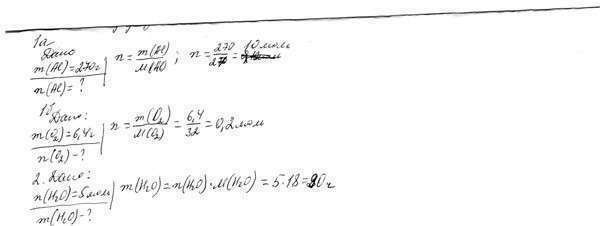 1а
Дано
m(Al)=270г
n(Al)=?
n = m(Al)/M(Al); n = 270/27 = 10 моль
1б
Дано:
m(O₂)=6,4г
n(O₂)-?
n = m(O₂)/M(O₂) = 6,4/32 = 0,2 моль
2. Дано:
n(H₂O)=5 моль
m(H₂O)-?
m(H₂O)=n(H₂O)·M(H₂O)=5·18=90г